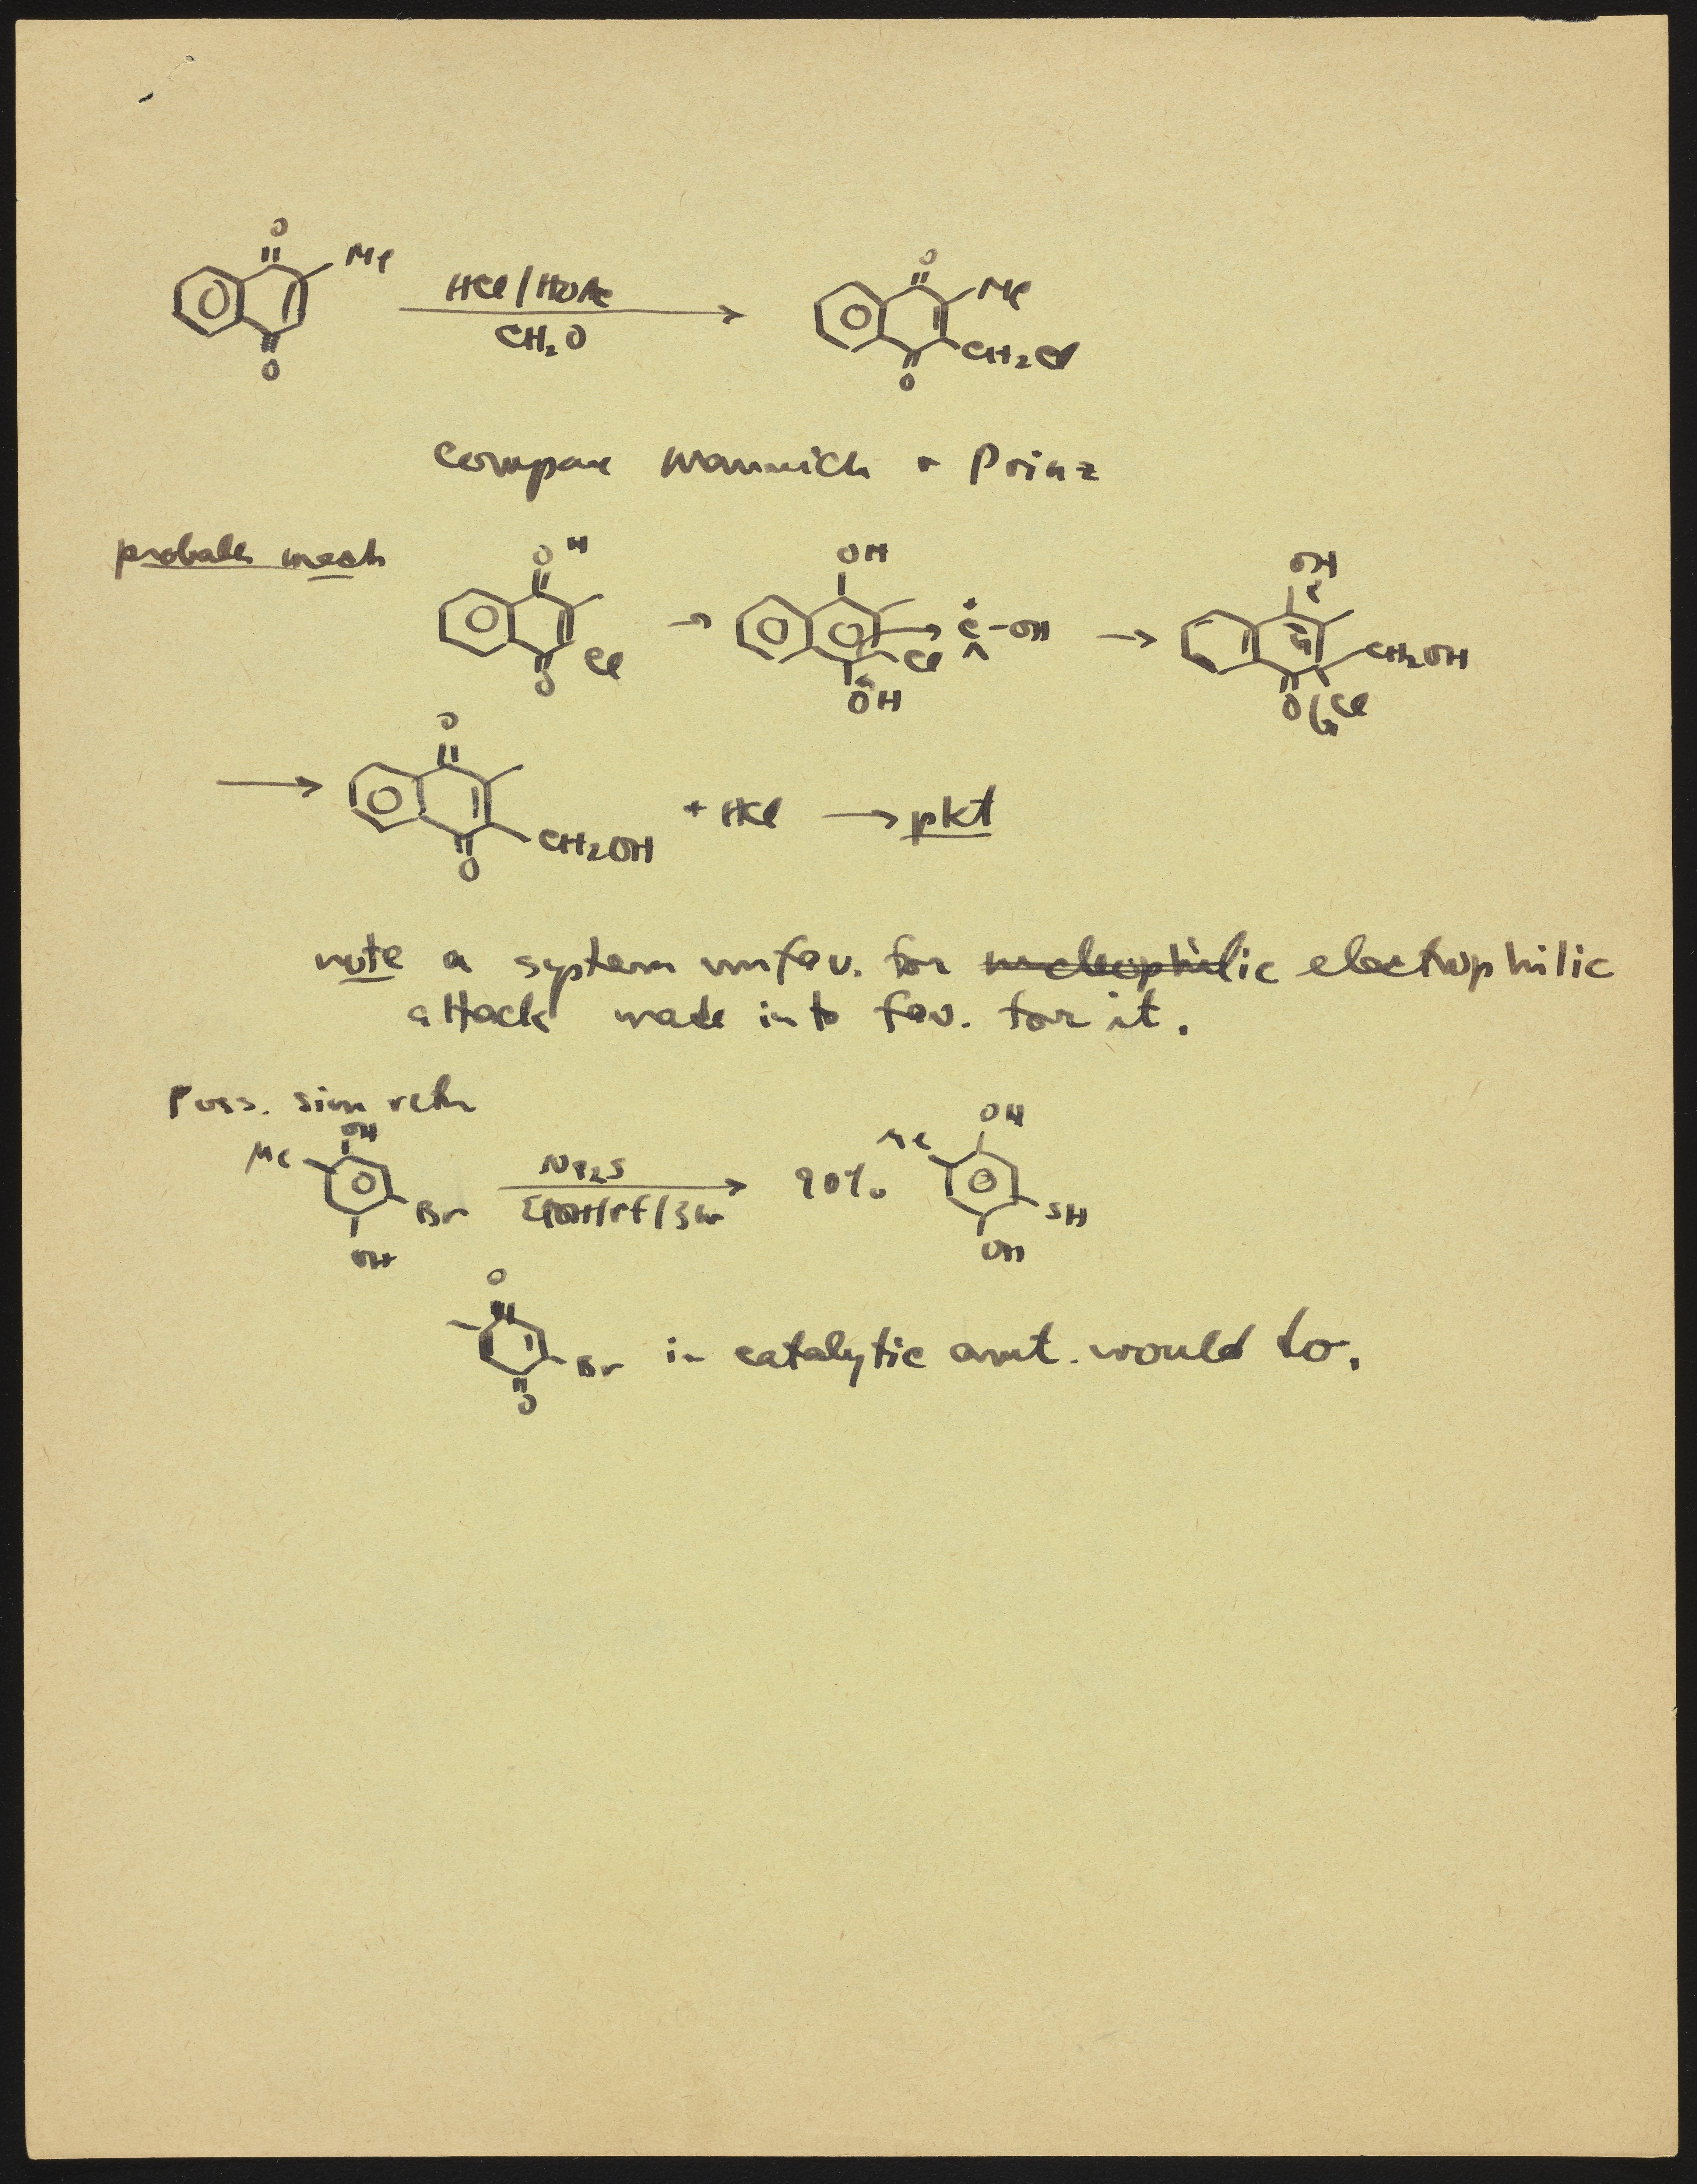 O
Me
HCl/HOAc
CH₂O
O
O
Me
CH₂Cl
O
Compare Mannich + Prinz
probable mech
O H
Cl
O
→
OH
Cl
OH
C-OH
→
OH
CH₂OH
O Cl
→
O
CH₂OH
O
+ HCl → pkt
note a system unfav. for nucleophilic electrophilic
attack made into fav. for it.
Poss. sim rctn
OH
Me
Br
OH
Na₂S
EtOH/rf/3hr
90%
OH
Me
SH
OH
O
Br
O
in catalytic amt. would do.